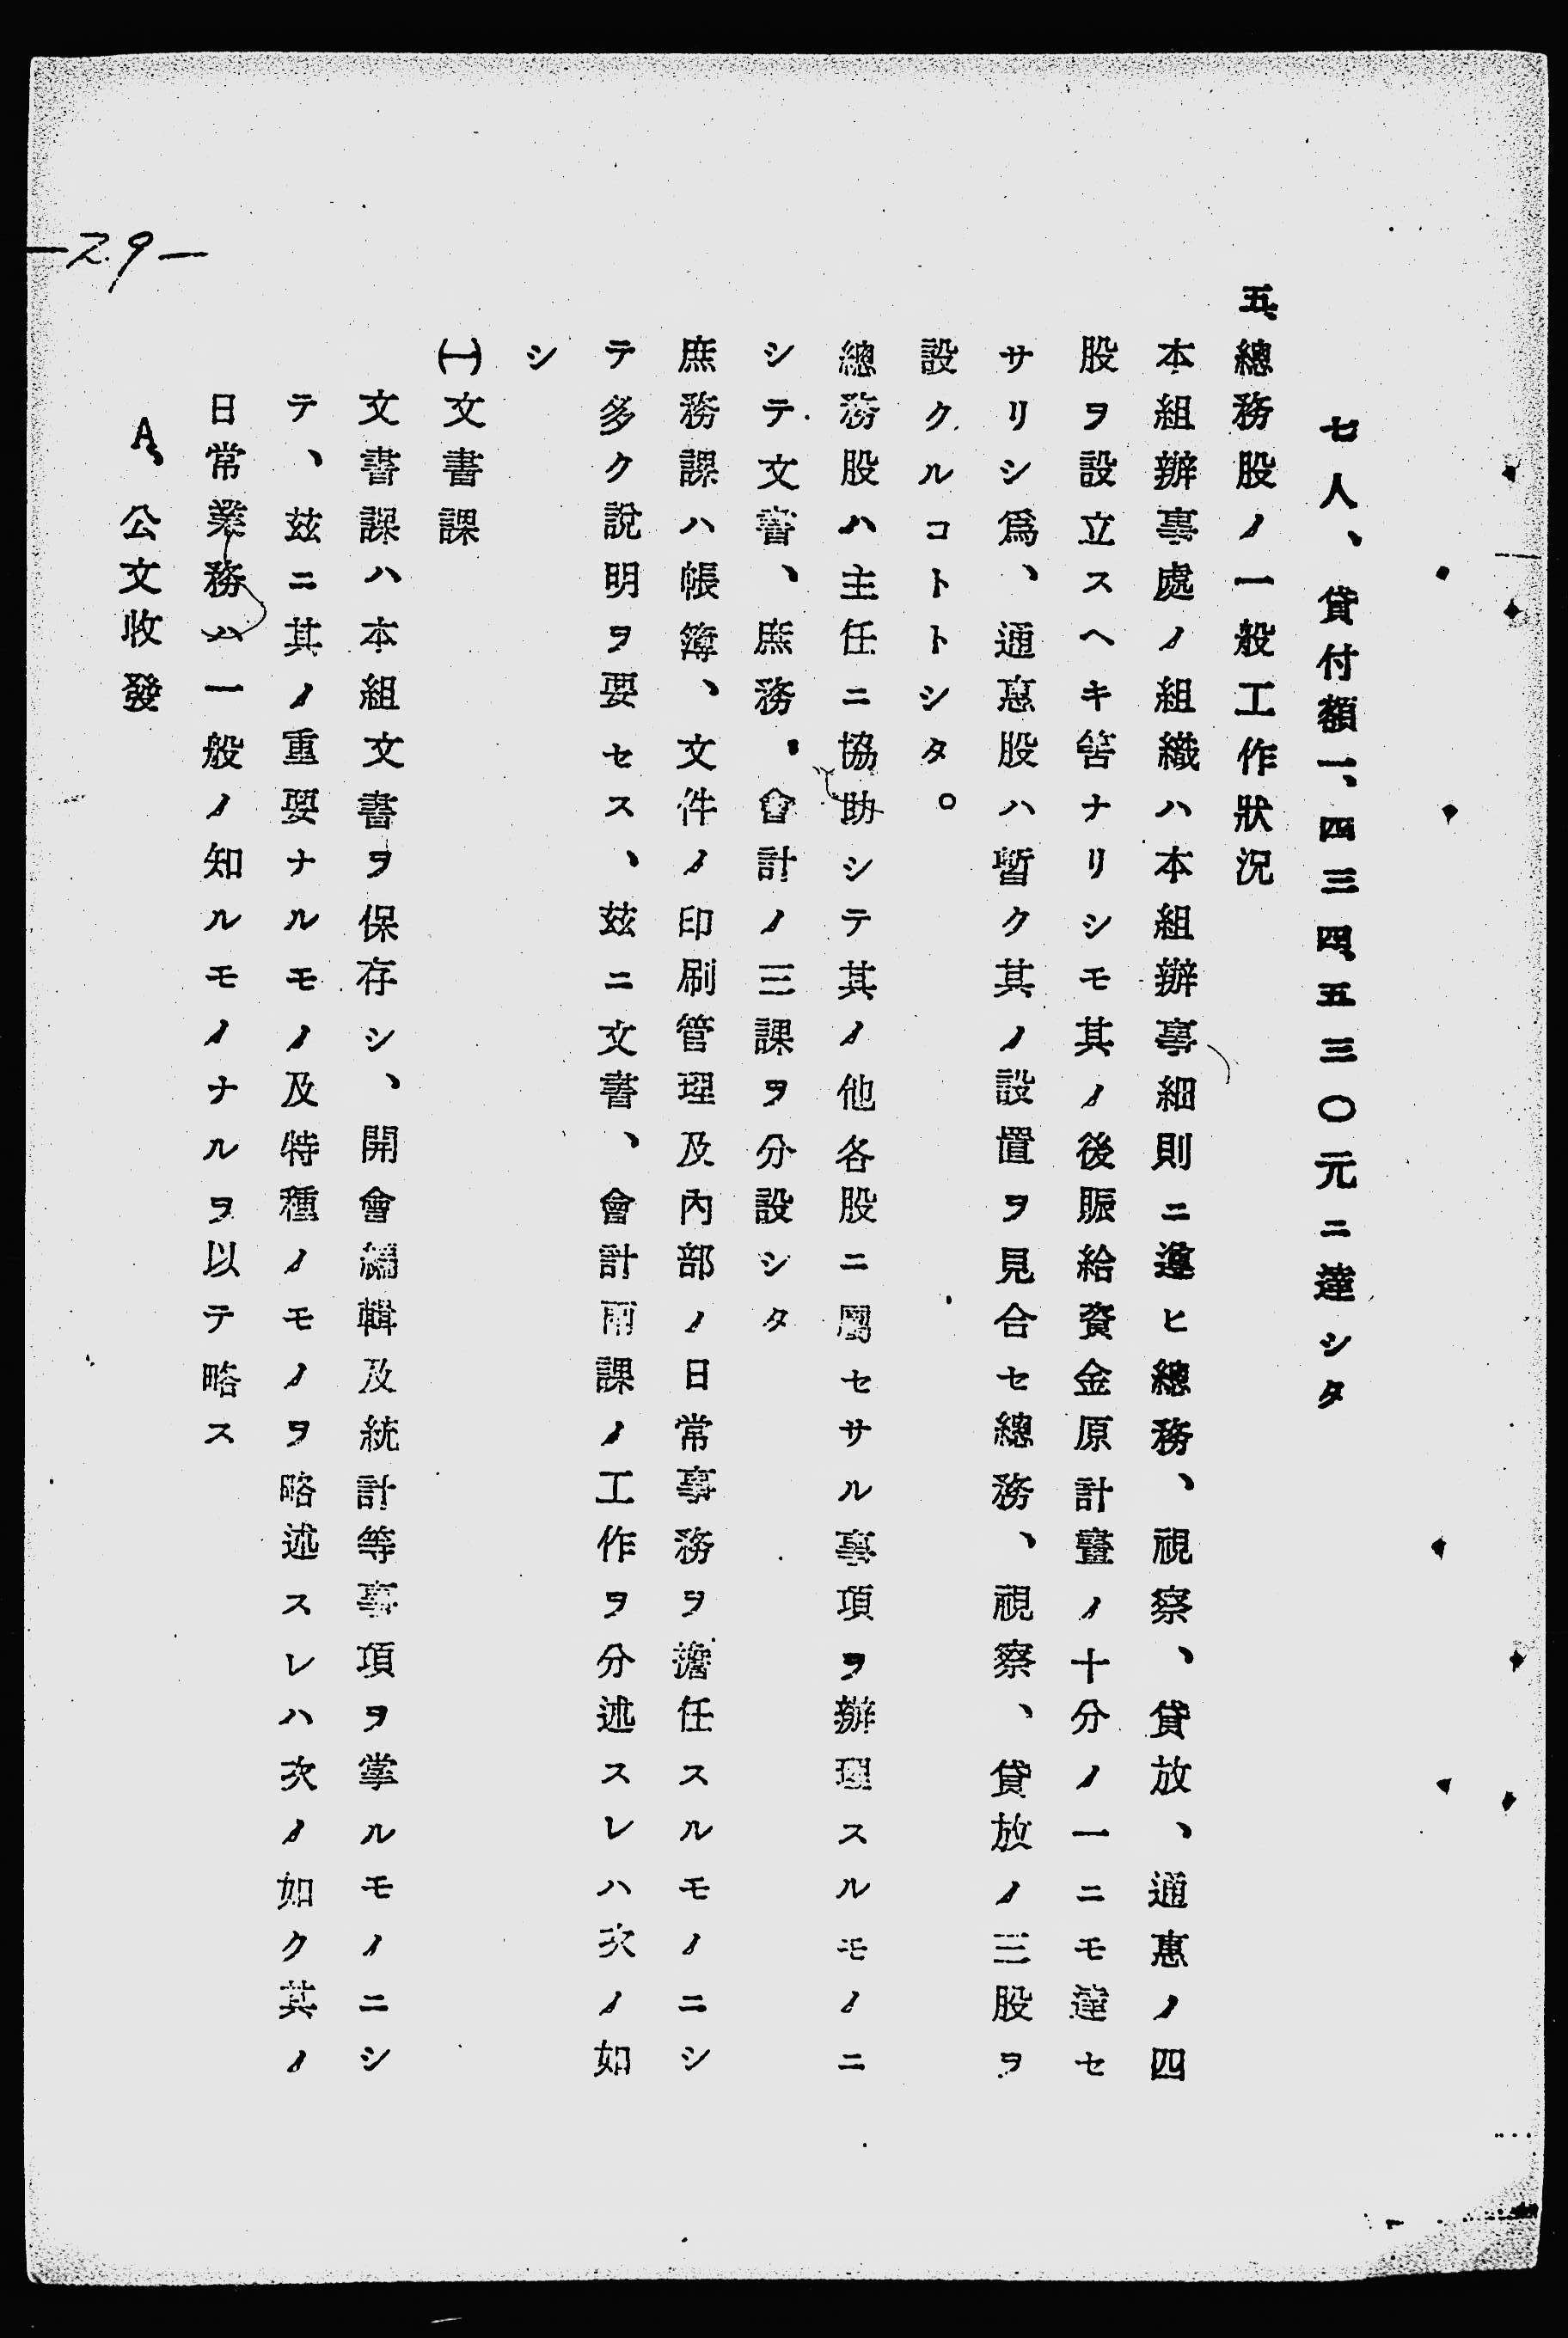 七人、貸付額一、四三四、五三〇元ニ達シタ
五、總務股ノ一般工作狀況
本組辦事處ノ組織ハ本組辦事細則ニ遵ヒ總務、視察、貸放、通惠ノ四
股ヲ設立スヘキ筈ナリシモ其ノ後賑給資金原計畫ノ十分ノ一ニモ達セ
サリシ爲、通惠股ハ暫ク其ノ設置ヲ見合セ總務、視察、貸放ノ三股ヲ
設クルコトトシタ。
總務股ハ主任ニ協助シテ其ノ他各股ニ屬セサル事項ヲ辦理スルモノニ
シテ文書、庶務、會計ノ三課ヲ分設シタ
庶務課ハ帳簿、文件ノ印刷管理及內部ノ日常事務ヲ擔任スルモノニシ
テ多ク說明ヲ要セス、玆ニ文書、會計兩課ノ工作ヲ分述スレハ次ノ如
シ
(一)文書課
文書課ハ本組文書ヲ保存シ、開會編輯及統計等事項ヲ掌ルモノニシ
テ、玆ニ其ノ重要ナルモノ及特種ノモノヲ略述スレハ次ノ如ク其ノ
日常業務ハ一般ノ知ルモノナルヲ以テ略ス
A、公文收發
—29—